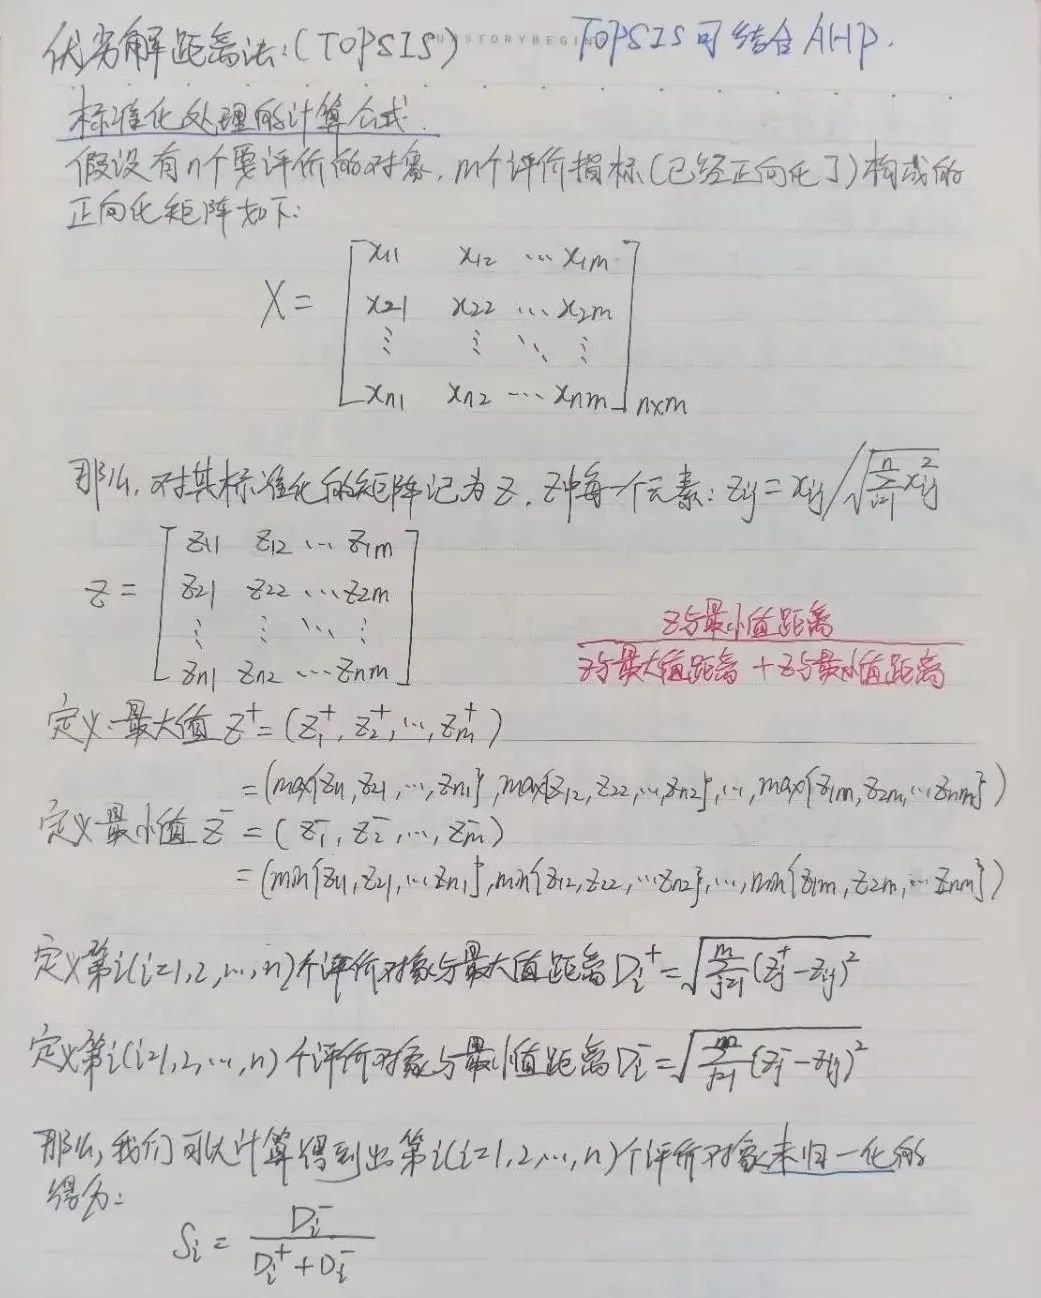 优劣解距离法:(TOPSIS) TOPSIS可结合AHP.
STORYBEGIN
标准化处理的计算公式.
假设有n个要评价的对象,m个评价指标(已经正向化了)构成的
正向化矩阵如下:
X = [ x11 x12 … x1m
x21 x22 … x2m
⋮ ⋮ ⋱ ⋮
xn1 xn2 … xnm ] n×m
那么,对其标准化的矩阵记为Z,Z中每一个元素: zij = xij / √(Σ_{i=1}^{n} xij²)
Z = [ z11 z12 … z1m
z21 z22 … z2m
⋮ ⋮ ⋱ ⋮
zn1 zn2 … znm ]
Z与最小值距离
Z与最大值距离 + Z与最小值距离
定义最大值 Z⁺ = (Z1⁺, Z2⁺, …, Zm⁺)
= (max{z11, z21, …, zn1}, max{z12, z22, …, zn2}, …, max{z1m, z2m, … znm})
定义最小值 Z⁻ = (Z1⁻, Z2⁻, …, Zm⁻)
= (min{z11, z21, … zn1}, min{z12, z22, … zn2}, …, min{z1m, z2m, … znm})
定义第i(i=1,2,…,n)个评价对象与最大值距离 Di⁺ = √(Σ_{j=1}^{m} (Zj⁺ − zij)²)
定义第i(i=1,2,…,n)个评价对象与最小值距离 Di⁻ = √(Σ_{j=1}^{m} (Zj⁻ − zij)²)
那么,我们可以计算得到出第i(i=1,2,…,n)个评价对象未归一化的
得分:
Si = Di⁻ / (Di⁺ + Di⁻)